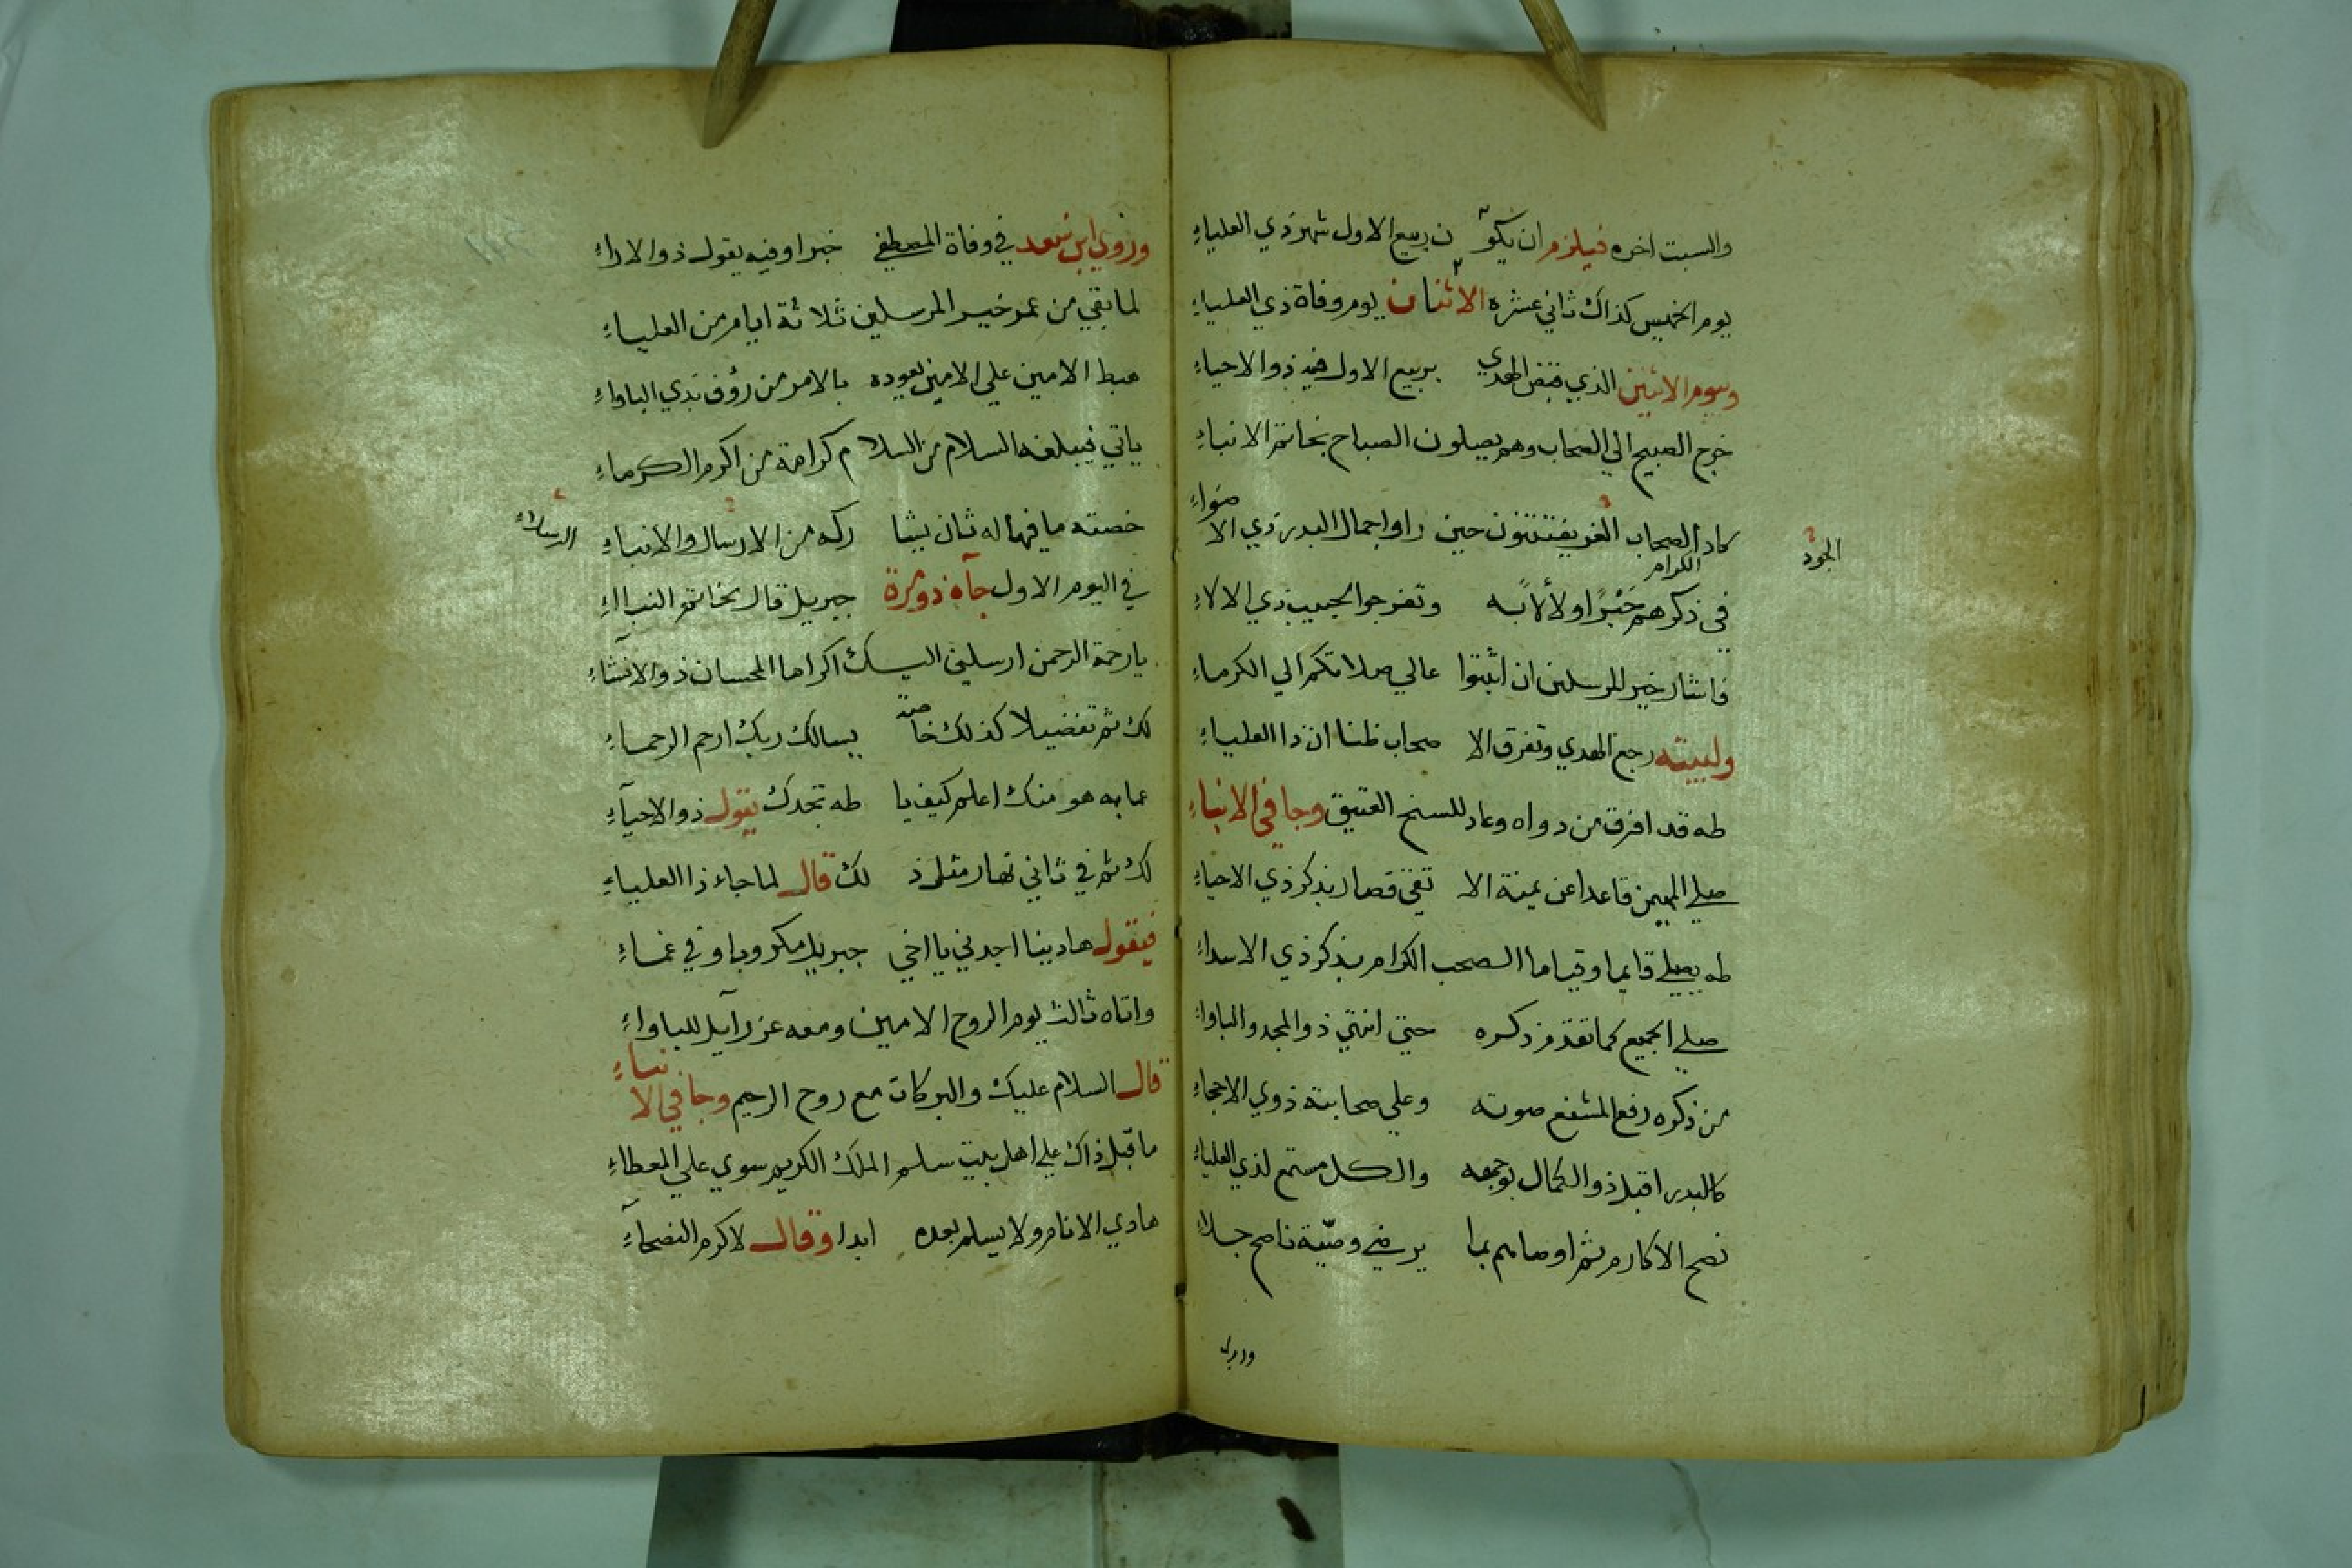 والسبت اخره فيلزم ان يكو ن ربيع الاول شهر ذي العلياء
يوم الخميس كذاك ثاني عشره الاثنان يوم وفاة ذي العلياء
ويوم الاثنين الذي قبض الهدي بربيع الاول فيه ذو الاحياء
خرج الصبيح الي الصحاب وهم يصلون الصباح بخاتم الانباء
كاد الصحاب الغر يفتتنون حين راوا جمال البدر ذي الاضواء
الكرام
الجود
في ذكرهم خبرا ولألأ به وتفرجوا لحبيب ذي الالاء
فاشار خير المرسلين ان اثبتوا عالي صلاتكم الي الكرماء
ولبيته رجع الهدي وتفرق الا صحاب ظنا ان ذا العلياء
طه قد افرق من دواه وعاد للسنح العتيق وجا في الانباء
صلي المبين قاعدا عن يمنة الا تقي فصار بذكر ذي الاحياء
طه يصلي قايما وقياما الصحب الكرام بذكر ذي الاسداء
صلي الجميع كما تقدم ذكره حتي انتهي ذو المجد والباواء
من ذكره رفع المشفع صوته وعلي صحابته ذوي الاحجاء
كالبدر اقبل ذو الكمال بوجهه والكل مستمع لذي العلياء
نصح الاكارم ثم اوصاهم بما يرضي وصية ناصح جلاء
وروي
وروي ابن سعد في وفاة المصطفي خبرا وفيه يقول ذو الاراء
لما بقي من عمر خير المرسلين ثلاثة ايام من العلياء
هبط الامين علي الامين يعوده بالامر من رؤف بذي الباواء
ياتي فيبلغه السلام من السلام كرامة من اكرم الكرماء
خصته ما فيها له ثان يشا ركه من الارسال والانباء
الرسلاء
في اليوم الاول جآه ذو مرة جبريل قال بخاتم النباء
يا رحمة الرحمن ارسلني اليك اكراما المحسان ذو الانشاء
لك ثم تفضيلا كذلك خاصة يسالك ربك ارحم الرحماء
عما به هو منك اعلم كيف يا طه تجدك يقول ذو الاحيآء
لك ثم في ثاني نهار مثل ذ لك قال لما جاء ذا العلياء
فيقول هادينا اجدني يا اخي جبريل مكروبا وفي غماء
واتاه ثالث يوم الروح الامين ومعه عزرآيل للباواء
قال السلام عليك والبركات مع روح الرحيم وجا في الانباء
ما قبل ذاك علي اهل بيت سلم الملك الكريم سوي علي المعطاء
هادي الانام ولا يسلم بعده ابدا وقال لاكرم النصحآء